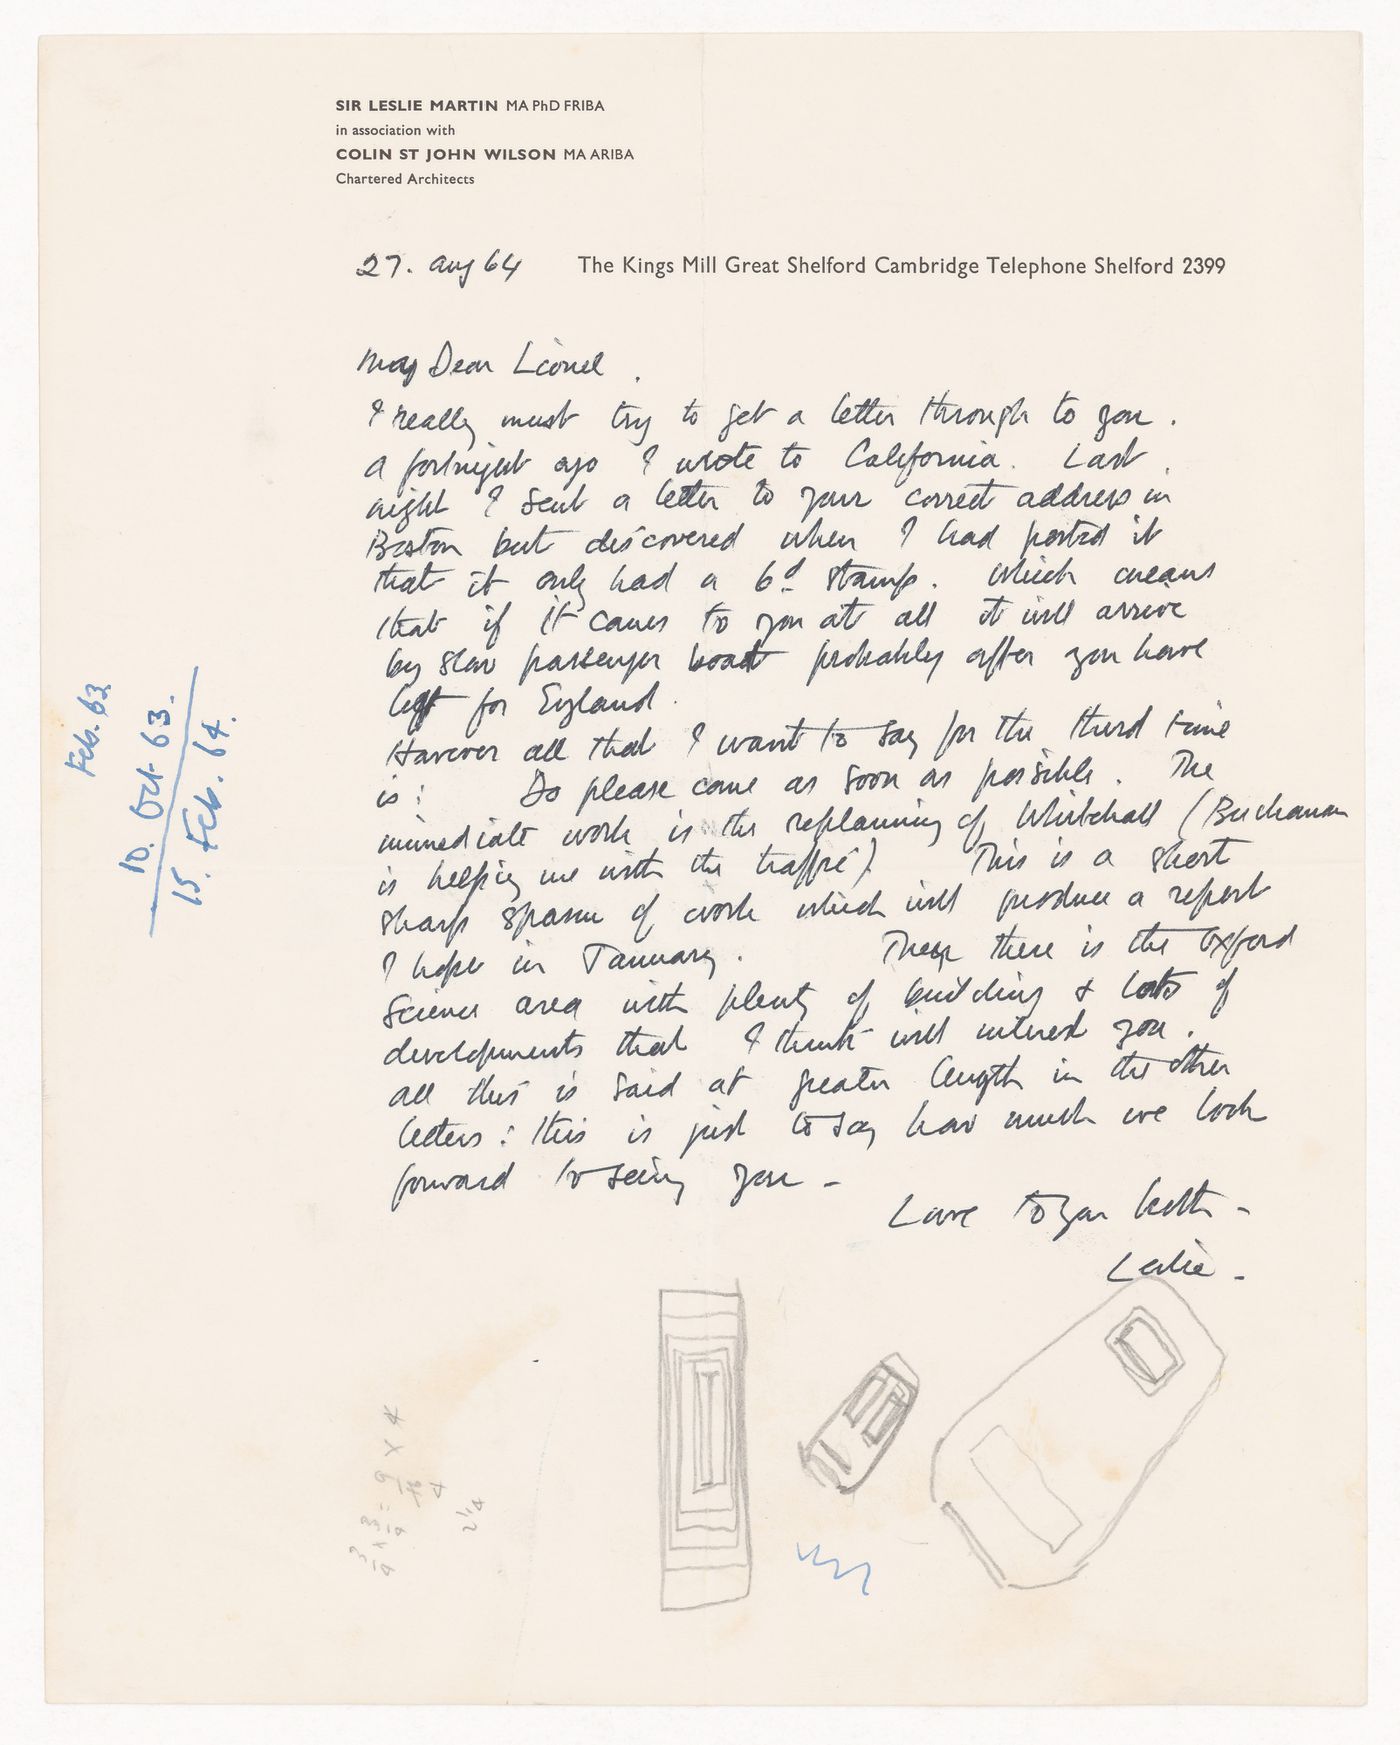 SIR LESLIE MARTIN MA PhD FRIBA
in association with
COLIN ST JOHN WILSON MA ARIBA
Chartered Architects
27. Aug 64 The Kings Mill Great Shelford Cambridge Telephone Shelford 2399
My Dear Lionel.
I really must try to get a letter through to you.
A fortnight ago I wrote to California. Last
night I sent a letter to your correct address in
Boston but discovered when I had posted it
that it only had a 6d stamp. Which means
that if it comes to you at all it will arrive
by slow passenger boat probably after you have
left for England.
However all that I want to say for the third time
is: Do please come as soon as possible. The
immediate work is the replanning of Whitehall (Buchanan
is helping me with the traffic). This is a short
sharp spasm of work which will produce a report
I hope in January. Then there is the Oxford
Science area with plenty of building & lots of
developments that I think will interest you.
All this is said at greater length in the other
letters: this is just to say how much we look
forward to seeing you -
Love to you both -
Leslie -
Feb. 63
10. Oct 63.
15. Feb. 64.
3/4 x 3/4 = 9/16 x 4
4
2 1/4